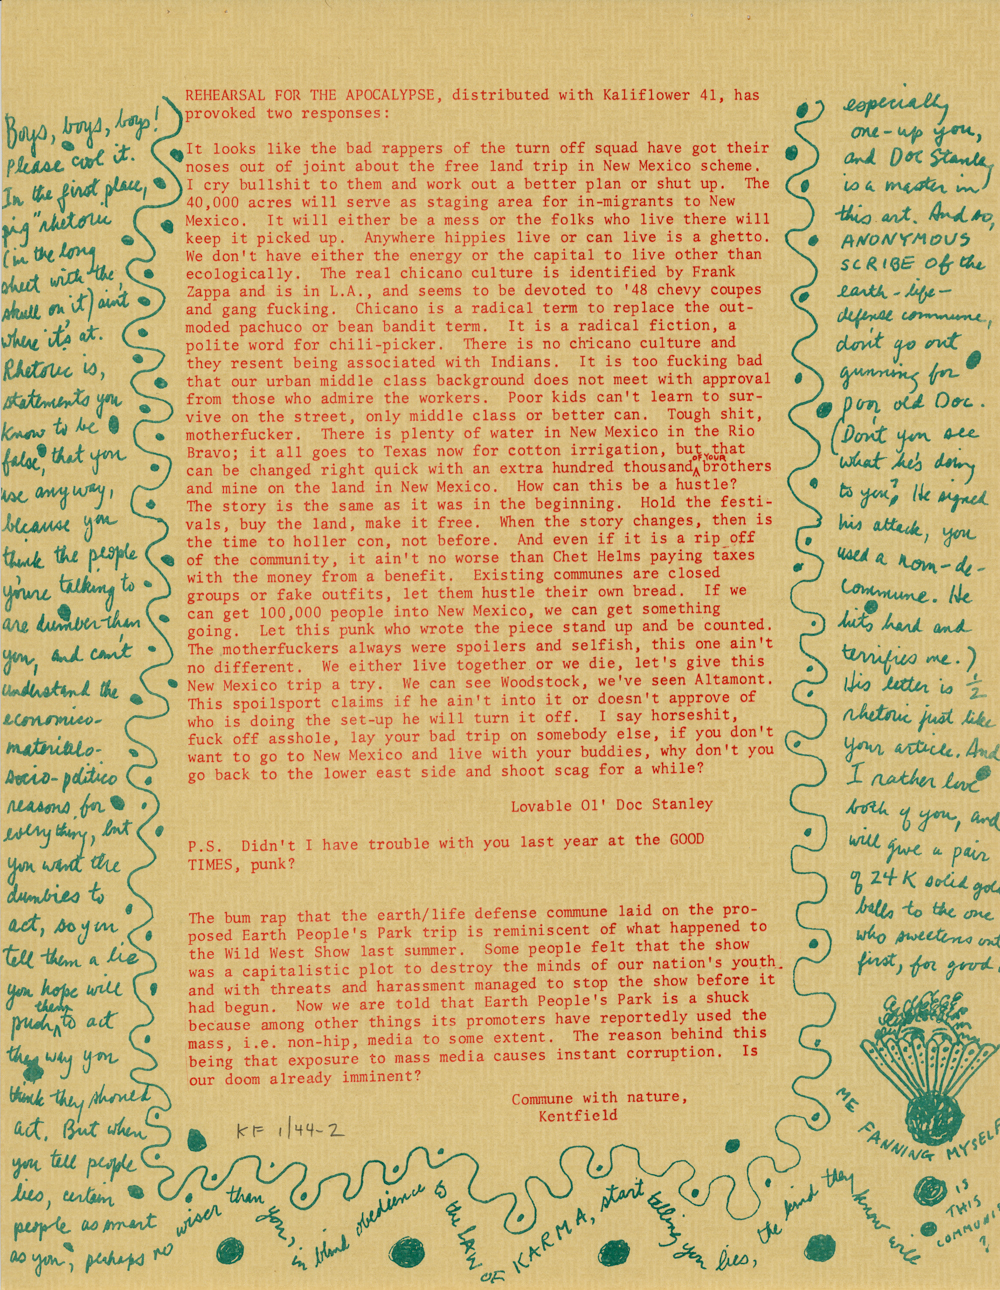 REHEARSAL FOR THE APOCALYPSE, distributed with Kaliflower 41, has
provoked two responses:
It looks like the bad rappers of the turn off squad have got their
noses out of joint about the free land trip in New Mexico scheme.
I cry bullshit to them and work out a better plan or shut up.  The
40,000 acres will serve as staging area for in-migrants to New
Mexico.  It will either be a mess or the folks who live there will
keep it picked up.  Anywhere hippies live or can live is a ghetto.
We don't have either the energy or the capital to live other than
ecologically.  The real chicano culture is identified by Frank
Zappa and is in L.A., and seems to be devoted to '48 chevy coupes
and gang fucking.  Chicano is a radical term to replace the out-
moded pachuco or bean bandit term.  It is a radical fiction, a
polite word for chili-picker.  There is no chicano culture and
they resent being associated with Indians.  It is too fucking bad
that our urban middle class background does not meet with approval
from those who admire the workers.  Poor kids can't learn to sur-
vive on the street, only middle class or better can.  Tough shit,
motherfucker.  There is plenty of water in New Mexico in the Rio
Bravo; it all goes to Texas now for cotton irrigation, but that
can be changed right quick with an extra hundred thousand OF YOUR brothers
and mine on the land in New Mexico.  How can this be a hustle?
The story is the same as it was in the beginning.  Hold the festi-
vals, buy the land, make it free.  When the story changes, then is
the time to holler con, not before.  And even if it is a rip off
of the community, it ain't no worse than Chet Helms paying taxes
with the money from a benefit.  Existing communes are closed
groups or fake outfits, let them hustle their own bread.  If we
can get 100,000 people into New Mexico, we can get something
going.  Let this punk who wrote the piece stand up and be counted.
The motherfuckers always were spoilers and selfish, this one ain't
no different.  We either live together or we die, let's give this
New Mexico trip a try.  We can see Woodstock, we've seen Altamont.
This spoilsport claims if he ain't into it or doesn't approve of
who is doing the set-up he will turn it off.  I say horseshit,
fuck off asshole, lay your bad trip on somebody else, if you don't
want to go to New Mexico and live with your buddies, why don't you
go back to the lower east side and shoot scag for a while?
Lovable Ol' Doc Stanley
P.S.  Didn't I have trouble with you last year at the GOOD
TIMES, punk?
The bum rap that the earth/life defense commune laid on the pro-
posed Earth People's Park trip is reminiscent of what happened to
the Wild West Show last summer.  Some people felt that the show
was a capitalistic plot to destroy the minds of our nation's youth
and with threats and harassment managed to stop the show before it
had begun.  Now we are told that Earth People's Park is a shuck
because among other things its promoters have reportedly used the
mass, i.e. non-hip, media to some extent.  The reason behind this
being that exposure to mass media causes instant corruption.  Is
our doom already imminent?
Commune with nature,
Kentfield
KF 1/44-2
Boys, boys, boys!
Please cool it.
In the first place,
pig "rhetoric"
(in the long
sheet with the
skull on it) ain't
where it's at.
Rhetoric is,
statements you
know to be
false, that you
use anyway,
because you
think the people
you're talking to
are dumber than
you, and can't
understand the
economico-
materialo-
socio-politico
reasons for
everything, but
you want the
dumbies to
act, so you
tell them a lie
you hope will
push them to act
the way you
think they should
act. But when
you tell people
lies, certain
people as smart
as you, perhaps no
wiser than you, in blind obedience to the LAW OF KARMA, start telling you lies, the kind they know will
especially
one-up you,
and Doc Stanley
is a master in
this art. And so,
ANONYMOUS
SCRIBE OF the
earth-life-
defense commune,
don't go out
gunning for
poor old Doc.
(Don't you see
what he's doing
to you? He signed
his attack, you
used a nom-de-
commune. He
hits hard and
terrifies me.)
His letter is 1/2
rhetoric just like
your article. And
I rather love
both of you, and
will give a pair
of 24K solid gold
balls to the one
who sweetens out
first, for good.
ME FANNING MYSELF
IS
THIS
COMMUNI
?